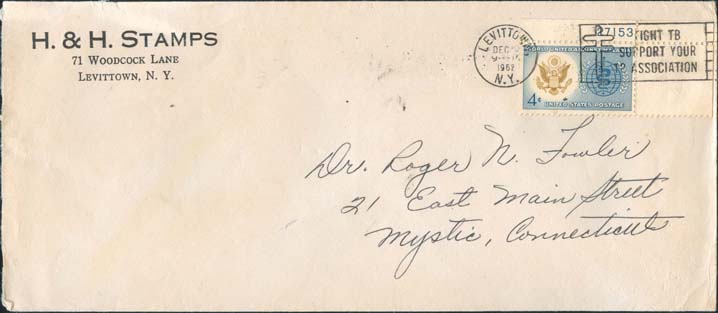 H. & H. STAMPS
71 WOODCOCK LANE
LEVITTOWN, N. Y.
LEVITTOWN
DEC
1962
N.Y.
27153
FIGHT TB
SUPPORT YOUR
TB ASSOCIATION
WORLD UNITED AGAINST
4¢
UNITED STATES POSTAGE
Dr. Roger N. Fowler
21 East Main Street
Mystic, Connecticut